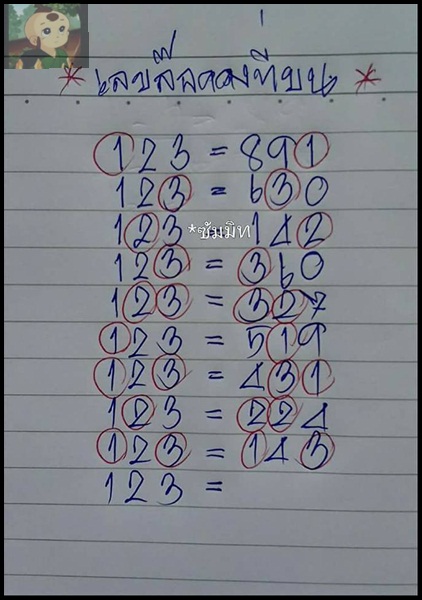 * เลขล็อคคงที่บน *
123 = 891
123 = 630
123 = 142
*ซัมมิท
123 = 360
123 = 327
123 = 519
123 = 431
123 = 224
123 = 143
123 =